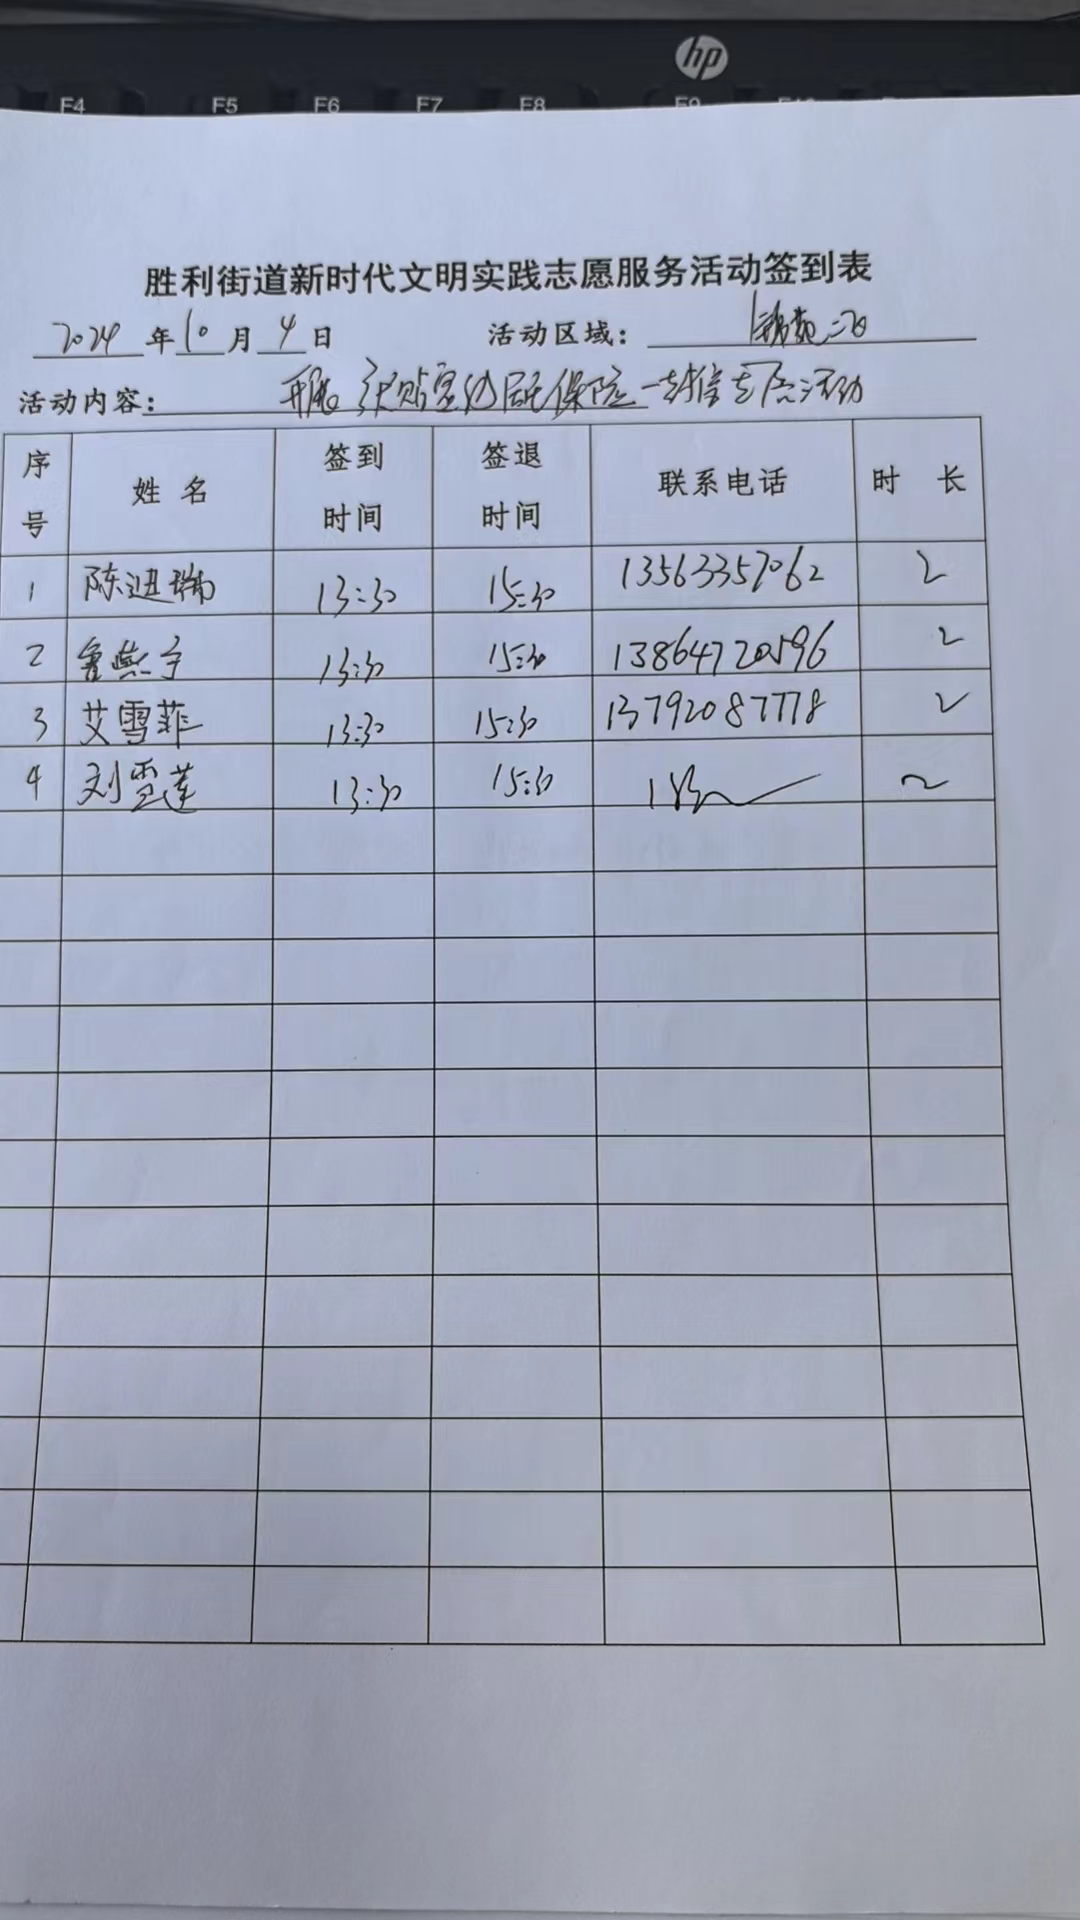 hp
F4 F5 F6 F7 F8 F9 F10
胜利街道新时代文明实践志愿服务活动签到表
2024 年 10 月 4 日 活动区域：
活动内容： 开展 张贴宣传居民保险一封信志愿活动
序号 姓名 签到时间 签退时间 联系电话 时长
1 陈迎瑞 13:30 15:30 13563357062 2
2 鲁燕宁 13:30 15:30 13864720596 2
3 艾雪菲 13:30 15:30 13792087778 2
4 刘雪莲 13:30 15:30 2